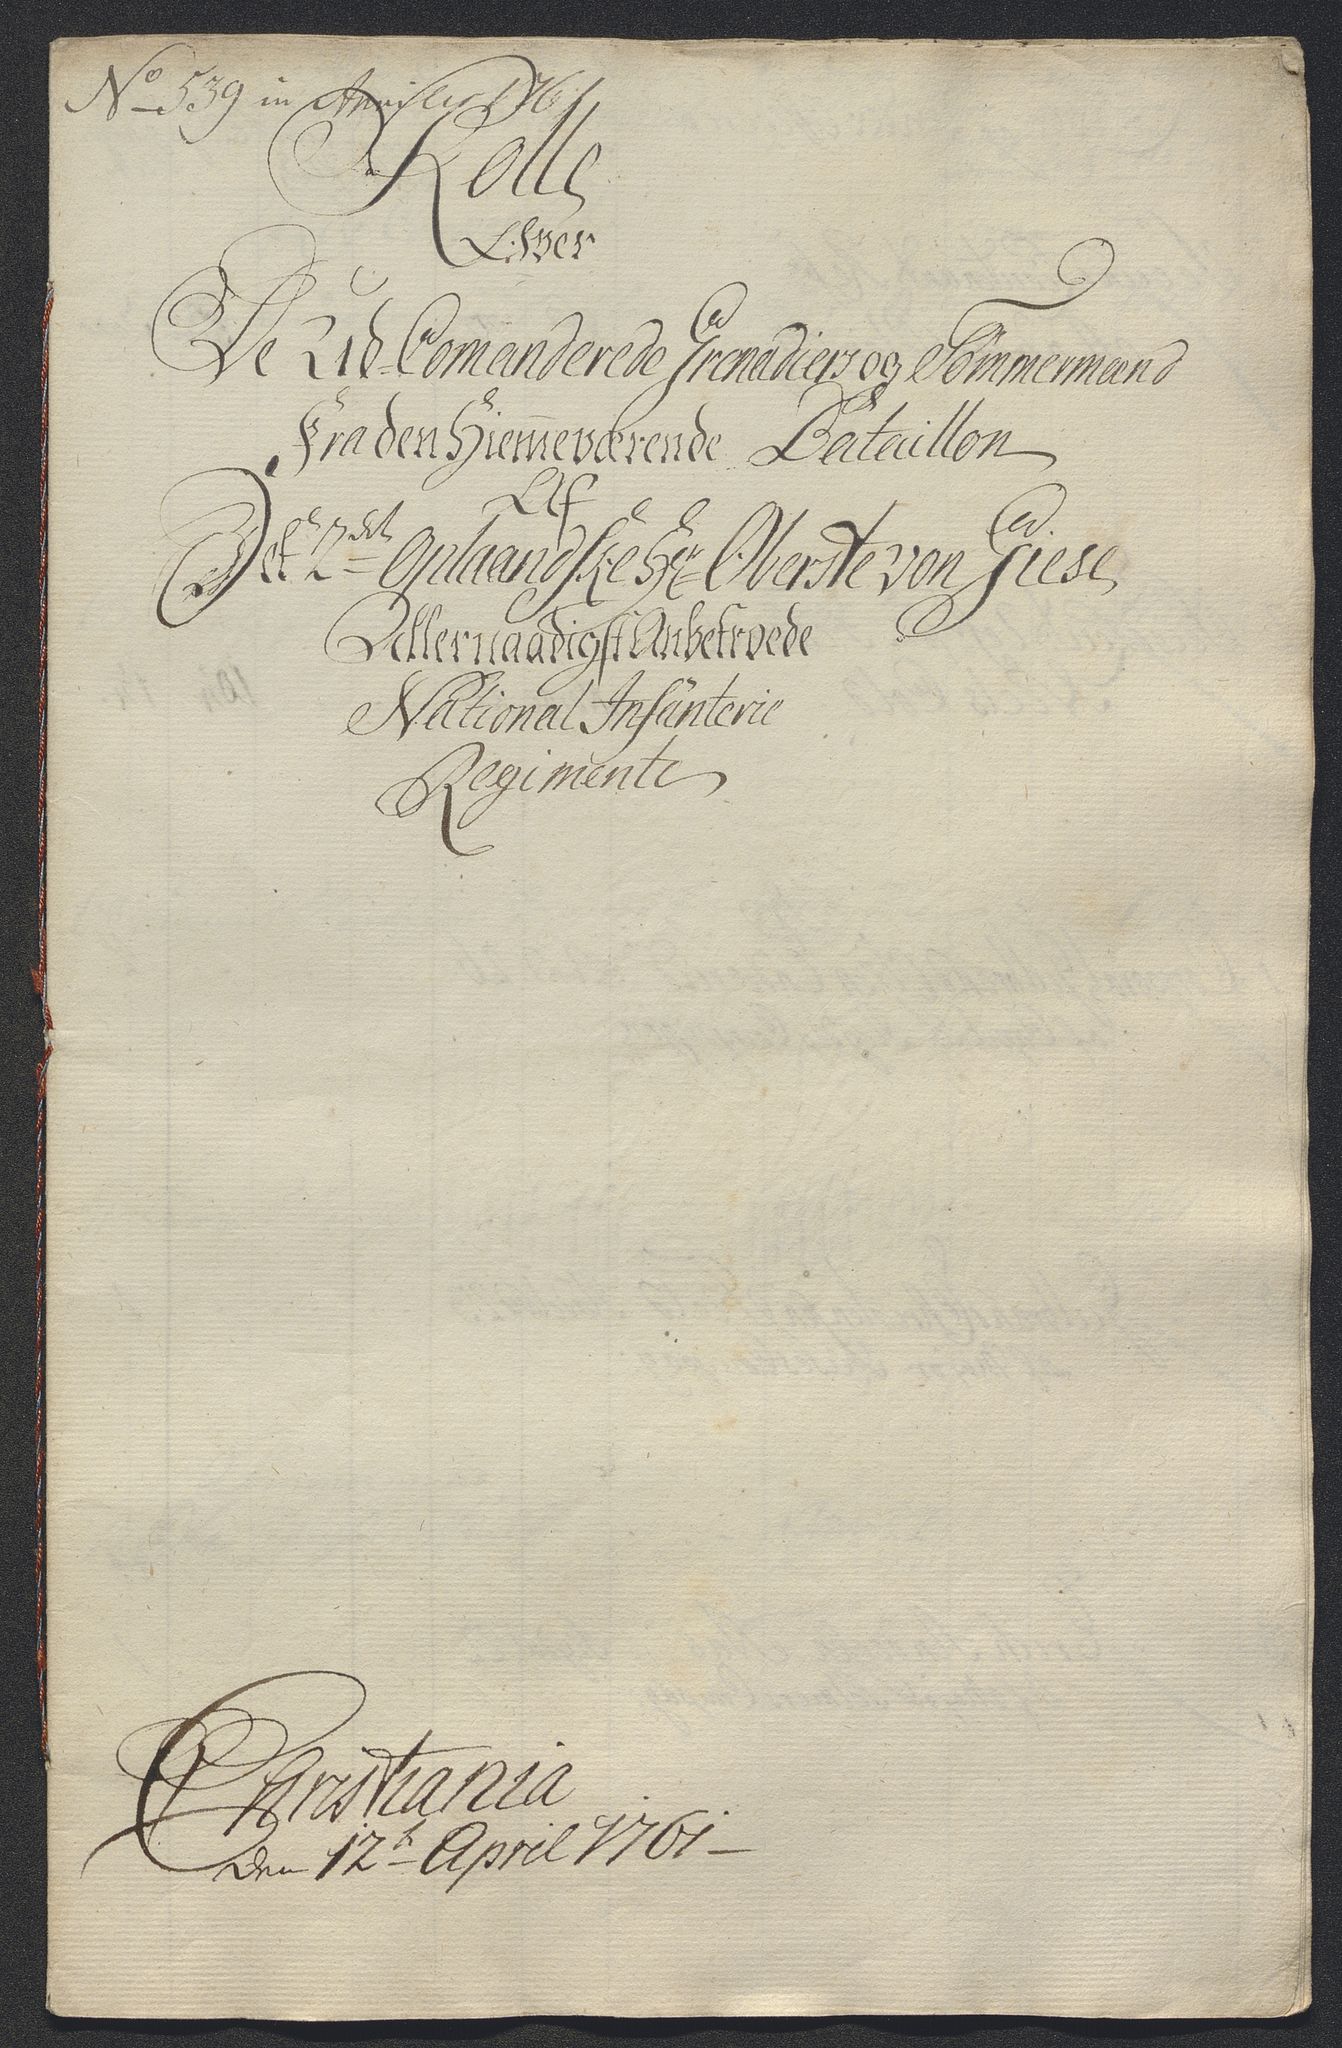 No 539 in 1761
Rolle
Over
De Ud Comanderede Grenadiers og Tömmermænd
Fra den Hiemeværende Bataillon
Af
Det 2det Oplaandske Hr Oberste von Giese
Allernaadigst Anbetroede
National Infanterie
Regimente
Christiania
Den 12t April 1761